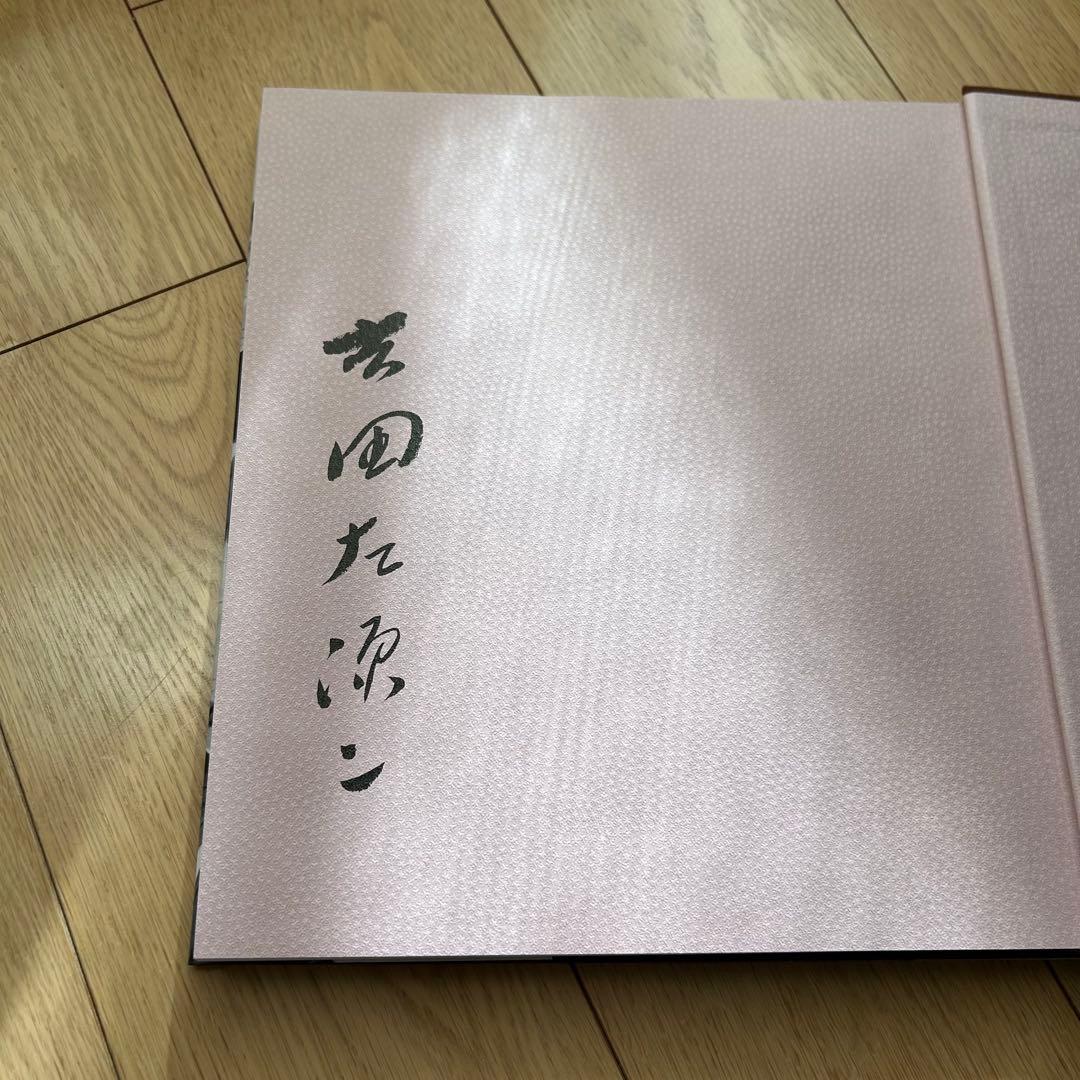 吉田左源二